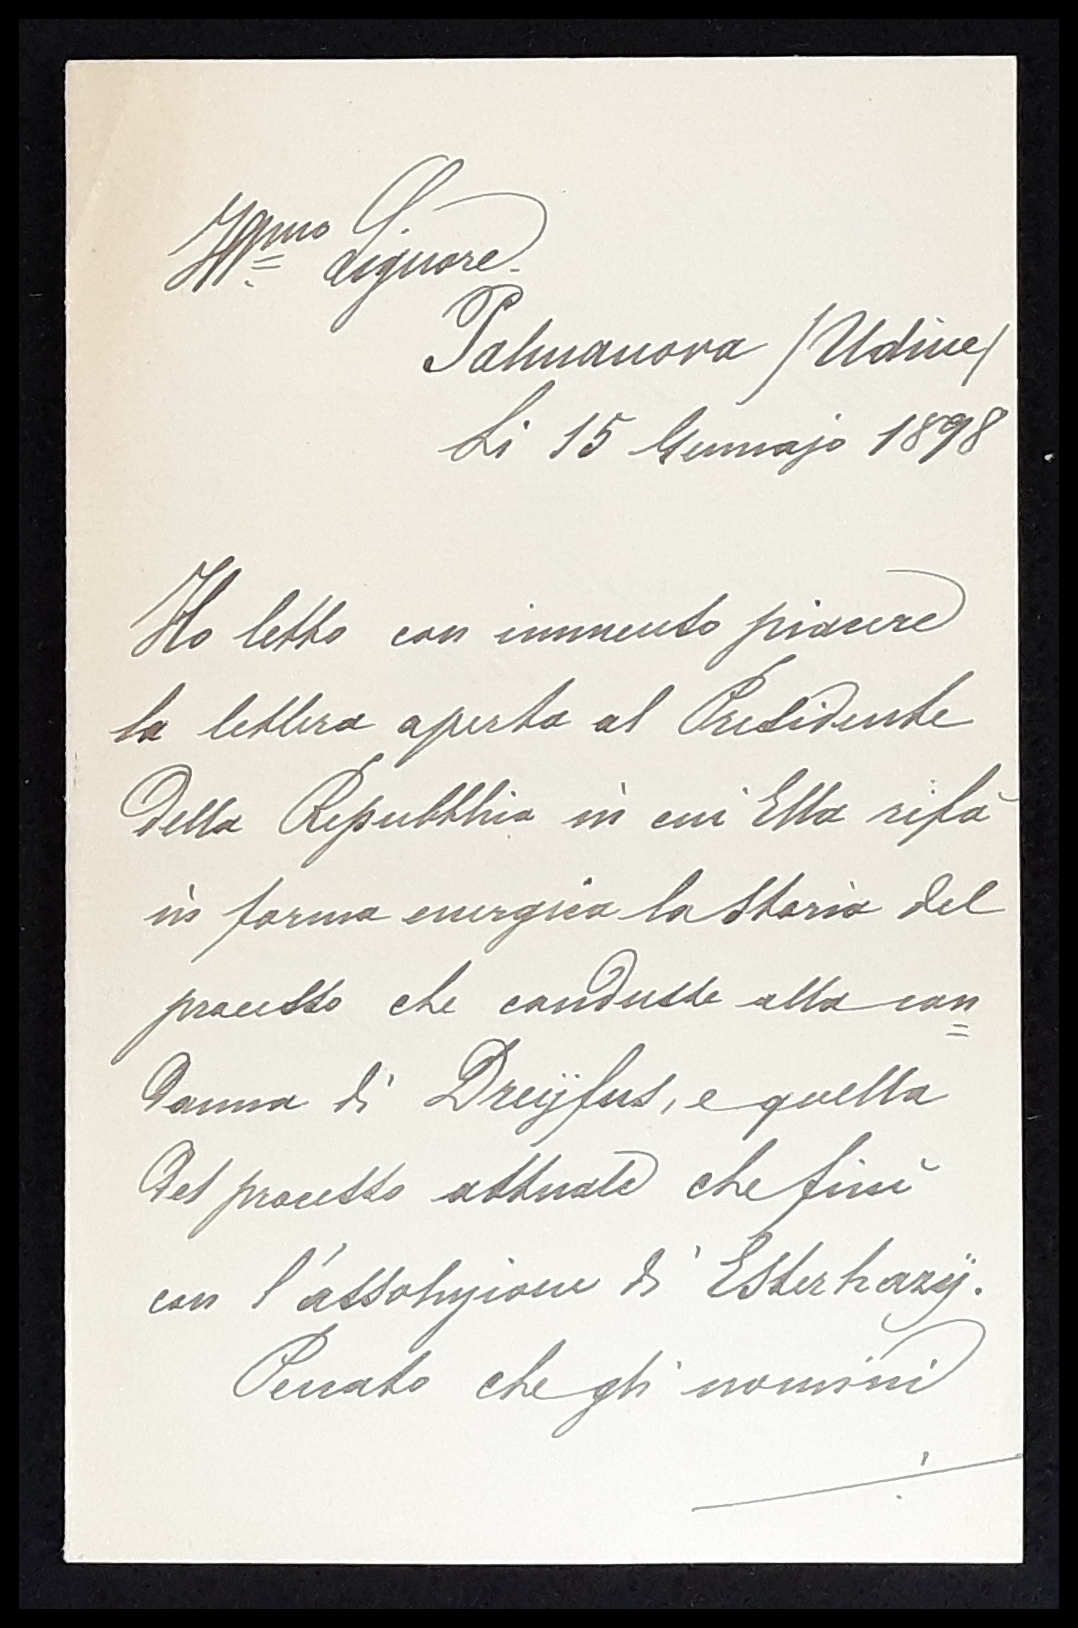 Ill.mo Signore.
Palmanova /Udine/
Li 15 Gennajo 1898
Ho letto con immenso piacere
la lettera aperta al Presidente
della Repubblica in cui Ella rifà
in forma energica la storia del
processo che condusse alla con=
danna di Dreÿfus, e quella
del processo attuale che finì
con l'assoluzione di Esterhazÿ.
Pensato che gli uomini